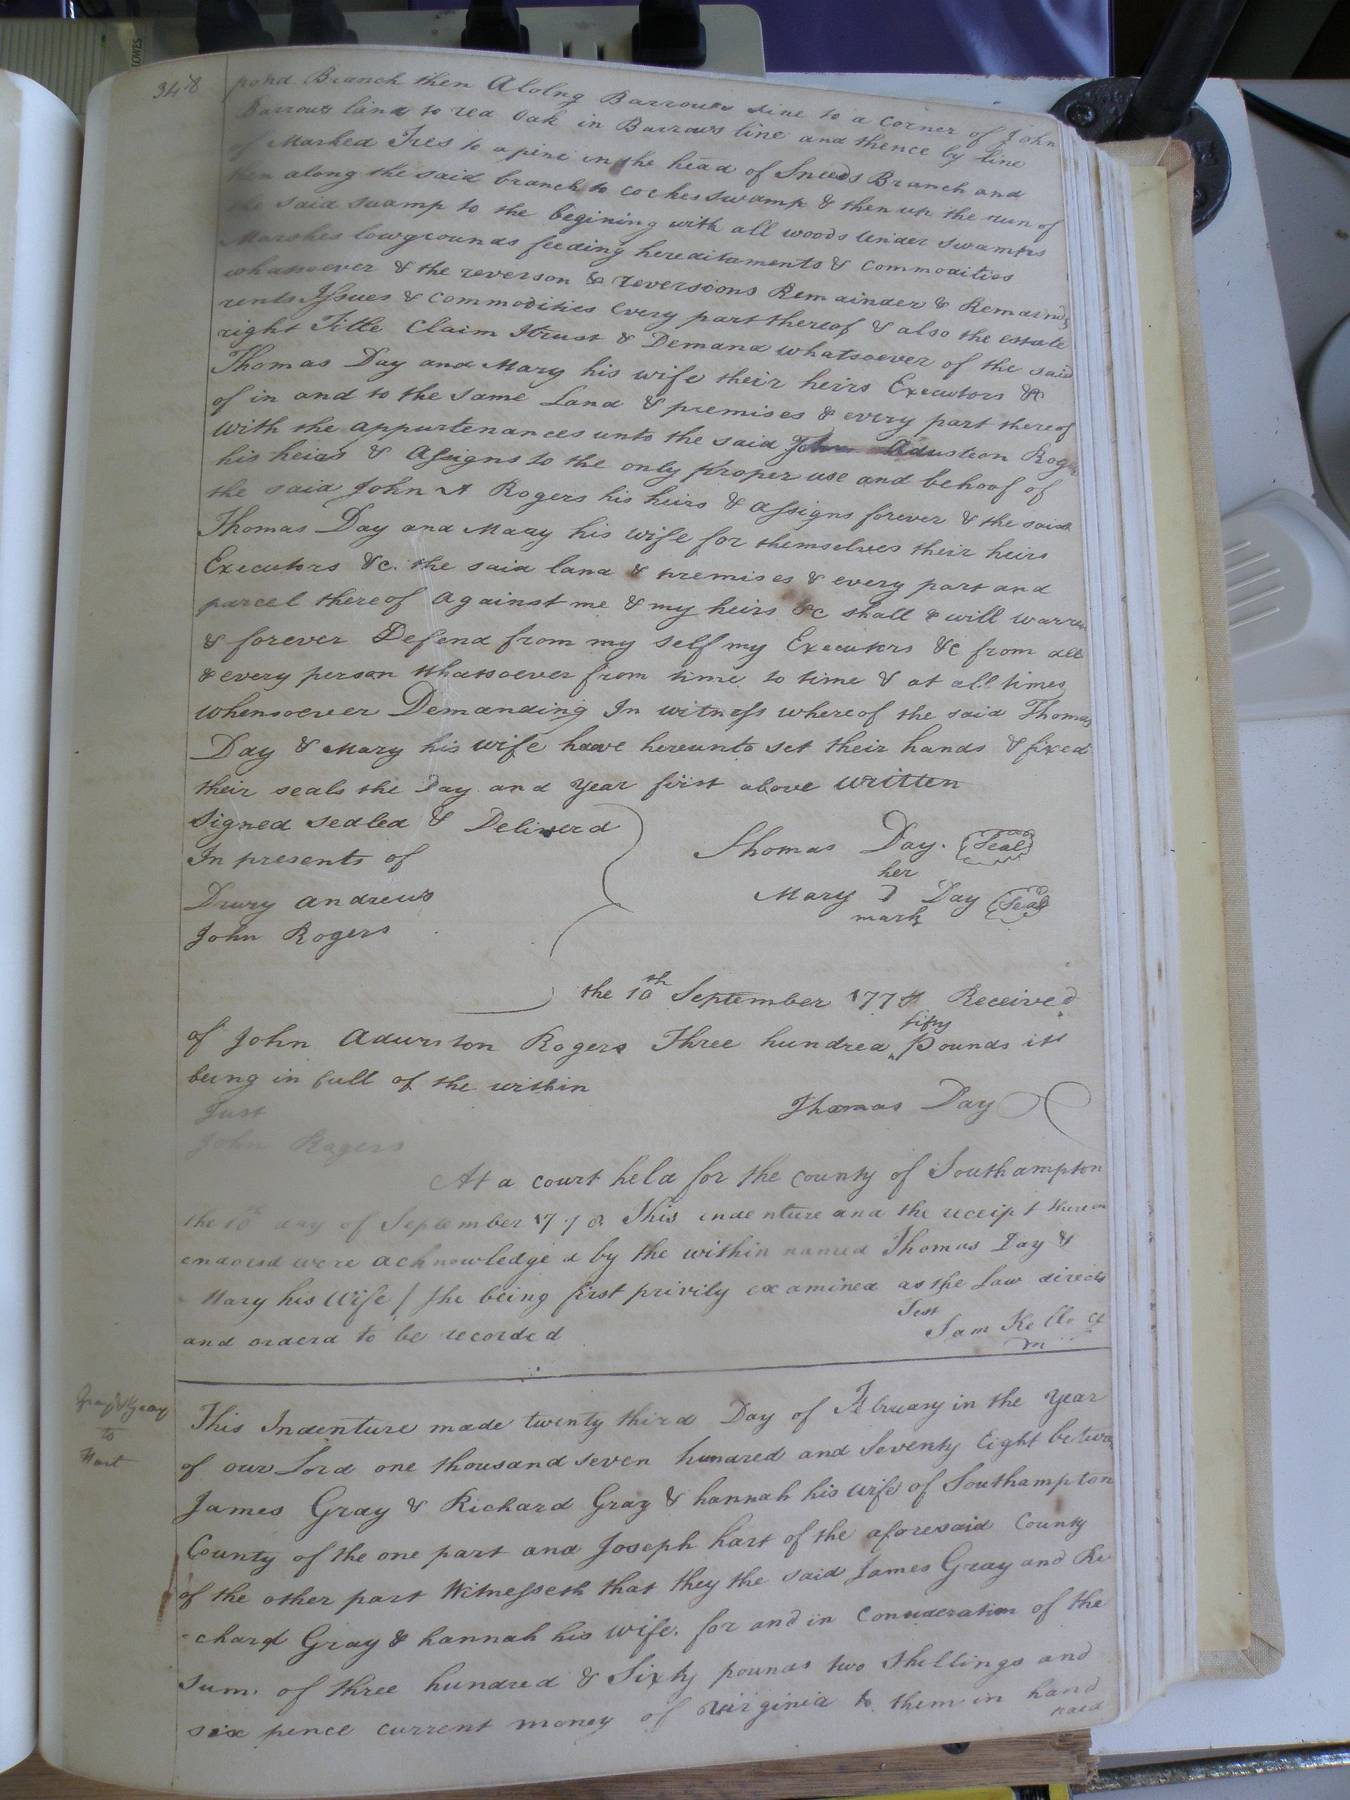 348
pond Branch then Alolng Barrows line to a corner of John
Barrows land to red oak in Barrows line and thence by line
of Marked Trees to a pine in the head of Sneeds Branch and
then along the said branch to cockes swamp & then up the run of
the said swamp to the begining with all woods under swamps
Marshes lowgrounds feeding hereditaments & commodities
whatsoever & the reverson & reversions Remainder & Remaind
rents Issues & commodities Every part thereof & also the estate
right Title Claim Itrust & Demand whatsoever of the said
Thomas Day and Mary his wife their heirs Executors &c
of in and to the same Land & premises & every part thereof
with the appurtenances unto the said John Adustion Rog
his heirs & Assigns to the only proper use and behoof of
the said John A Rogers his heirs & assigns forever & the said
Thomas Day and Mary his wife for themselves their heirs
Executors &c. the said land & premises & every part and
parcel thereof against me & my heirs &c shall & will warr
& forever Defend from my self my Executors &c from all
& every person whatsoever from time to time & at all times
whensoever Demanding In witness whereof the said Thomas
Day & Mary his wife have hereunto set their hands & fixed
their seals the Day and Year first above written
Signed sealed & Deliverd
In presents of
Drury andrews
John Rogers
Thomas Day. Seal
her
Mary Day Seal
mark
the 10th September 177 Received
fifty
of John Adurston Rogers Three hundred Pounds itt
being in full of the within
Thomas Day
Just
John Rogers
At a court held for the county of Southampton
the 10th day of September 17 This indenture and the receipt thereon
endorsd were acknowledged by the within named Thomas Day &
Mary his Wife / she being first privily examined as the Law directs
and orderd to be recorded
Test
Sam Kello Cl
Gray & Gray
to
Hart
This Indenture made twenty third Day of February in the Year
of our Lord one thousand seven hundred and Seventy Eight between
James Gray & Richard Gray & hannah his wife of Southampton
County of the one part and Joseph hart of the aforesaid County
of the other part Witnesseth that they the said James Gray and Ri
-chard Gray & hannah his wife. for and in consideration of the
Sum. of three hundred & Sixty pounds two Shillings and
six pence current money of virginia to them in hand
paid